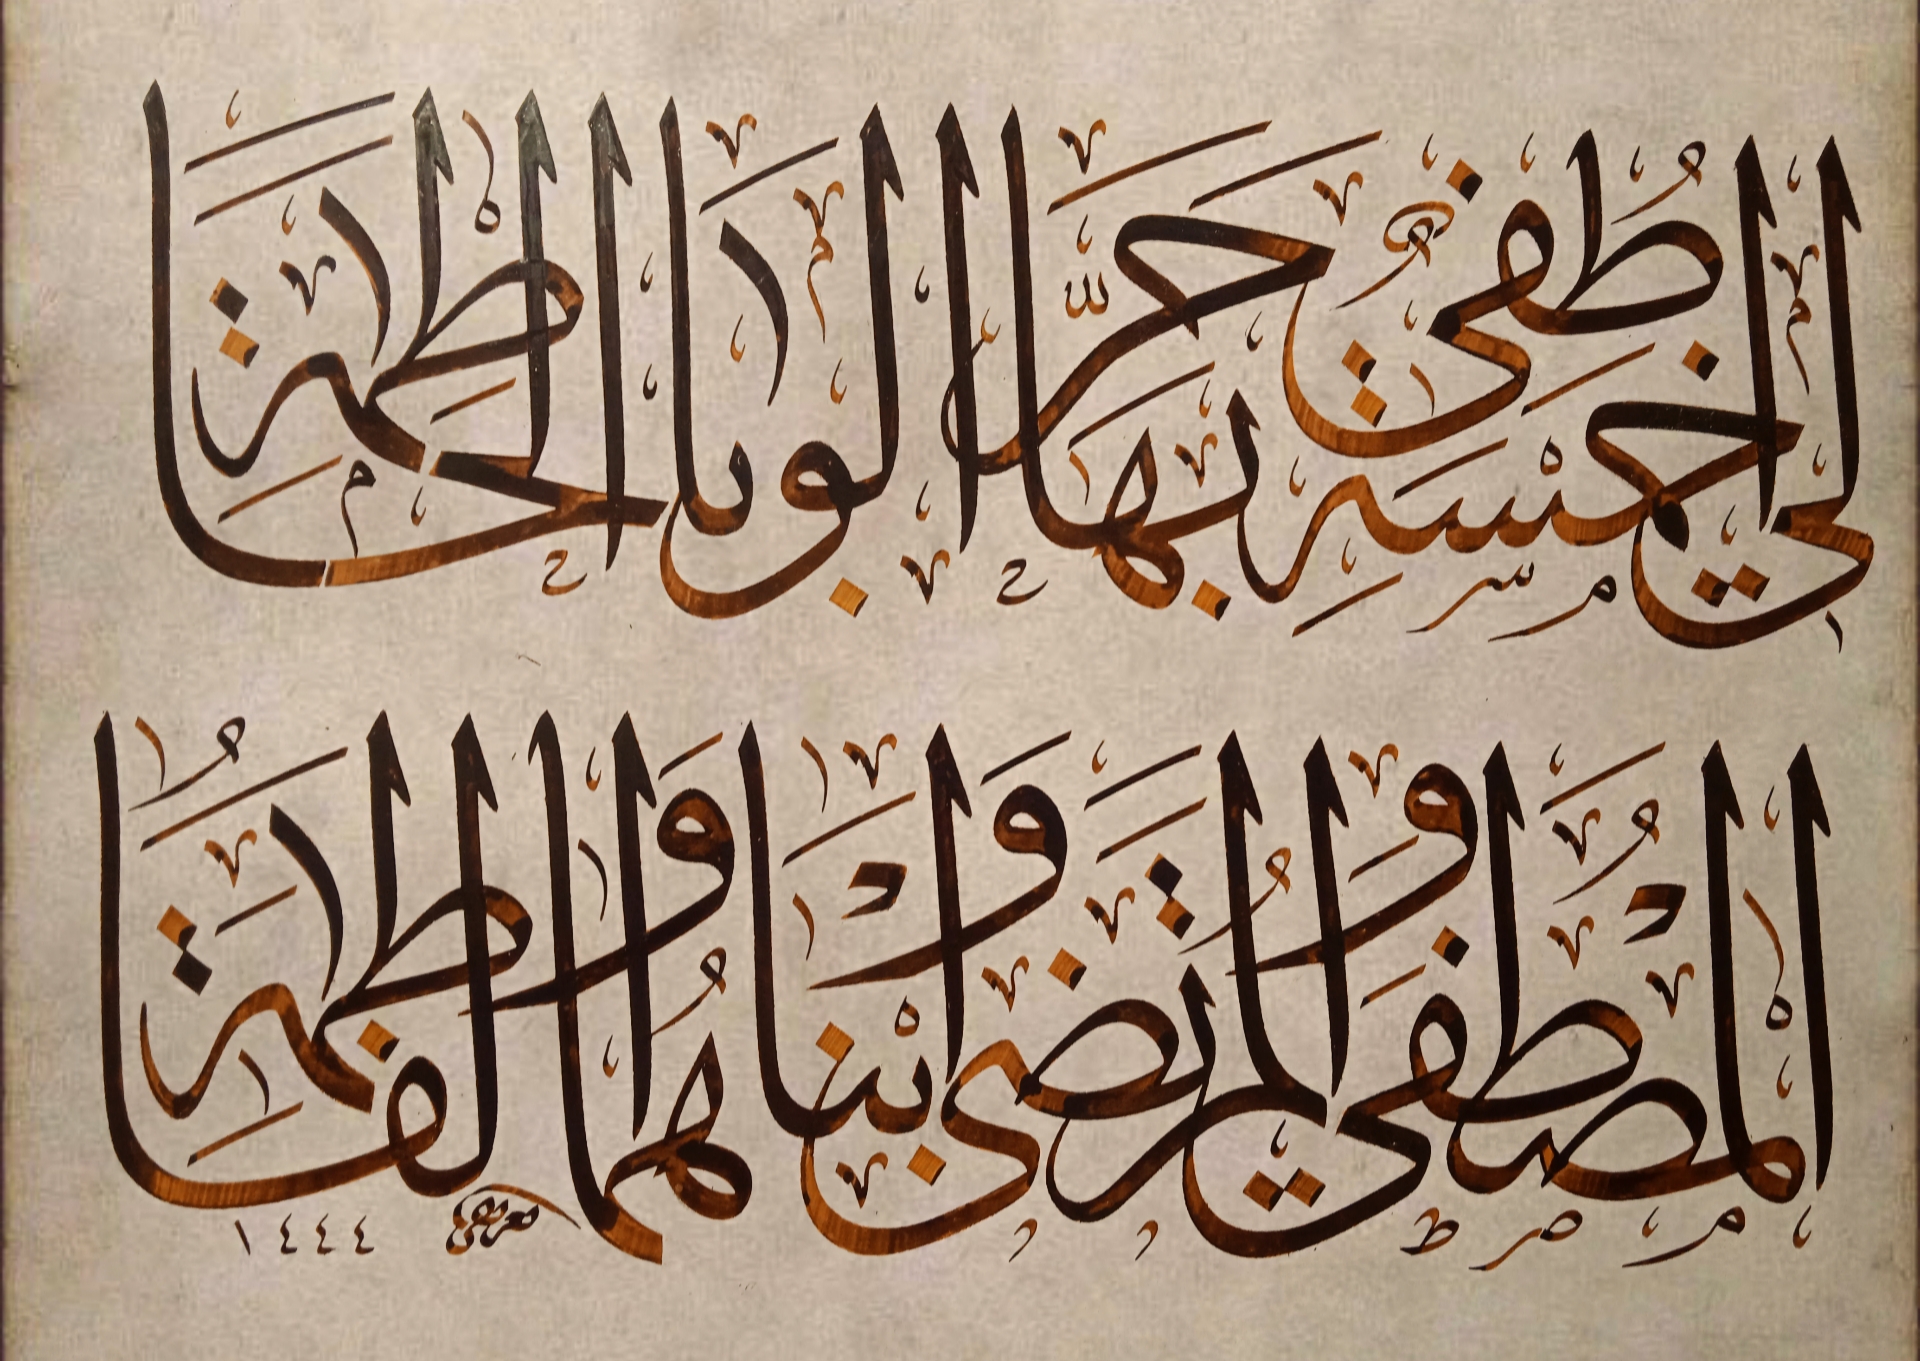 لي خمسة أطفي بها حر الوباء الحاطمة
المصطفى والمرتضى وابناهما والفاطمة
١٤٤٤